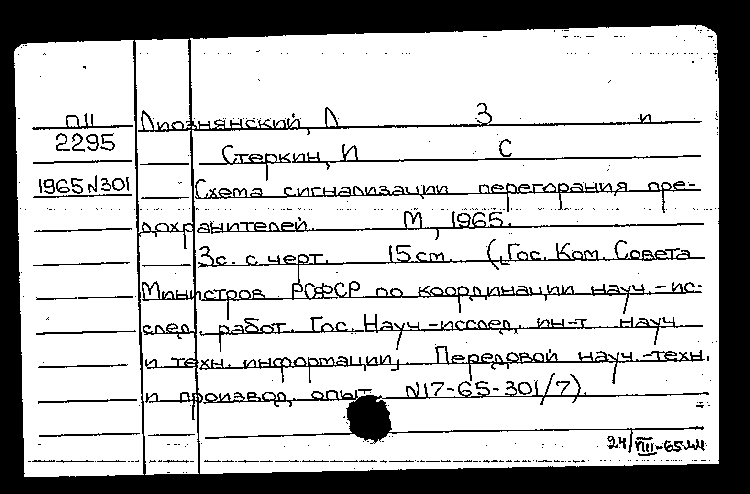 П11 Лиознянский, Л З и
2295 Стеркин, И С
1965 N301 Схема сигнализации перегорания пре-
дохранителей. М, 1965.
3с. с черт. 15 cm. (Гос. Ком. Совета
Министров РСФСР по координации науч.-ис-
след. работ. Гос. Науч-исслед. ин-т науч
и техн. информации. Передовой науч.-техн.
и производ. опыт. N17-65-301/7).
24/VIII-65